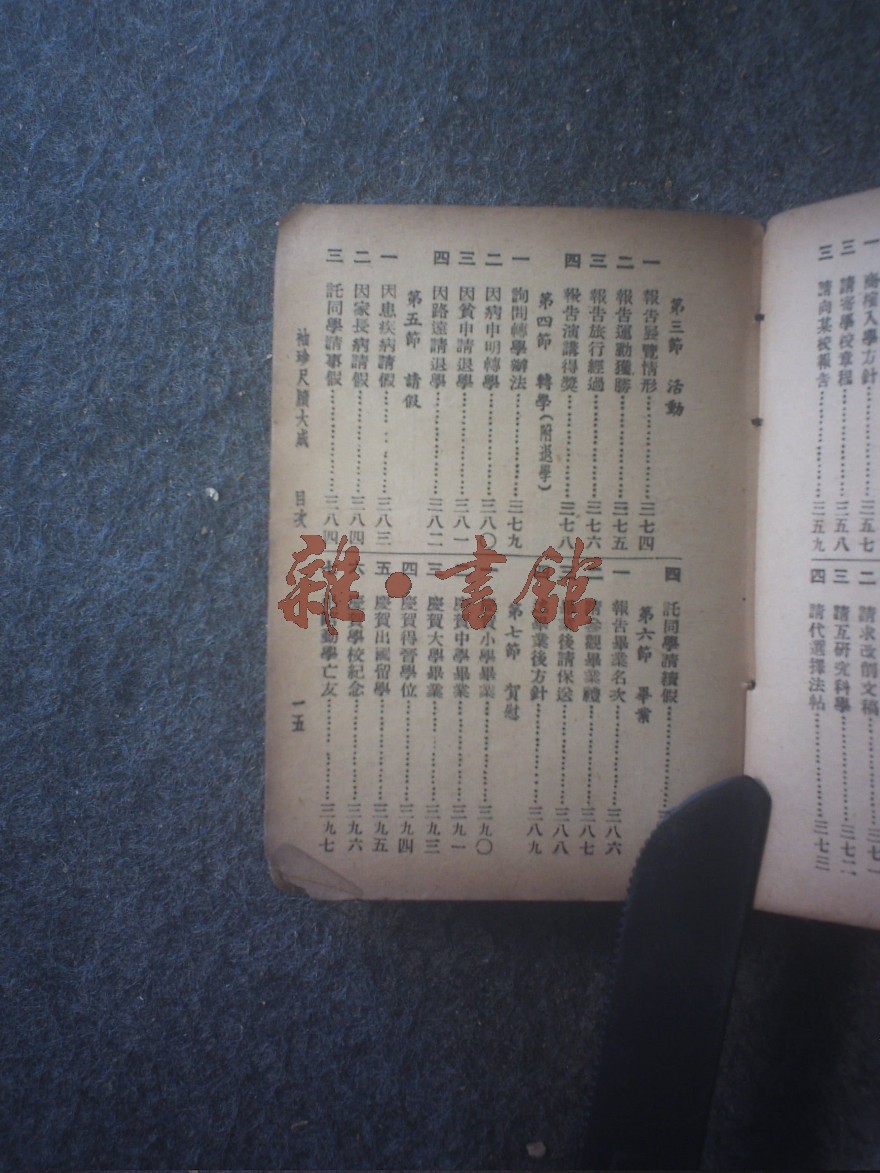 第三節 活動
一 報告展覽情形 三七四
二 報告運動獲勝 三七五
三 報告旅行經過 三七六
四 報告演講得獎 三七八
第四節 轉學(附退學)
一 詢問轉學辦法 三七九
二 因病申明轉學 三八〇
三 因貧申請退學 三八一
四 因路遠請退學 三八二
第五節 請假
一 因患疾病請假 三八三
二 因家長病請假 三八四
三 託同學請事假 三八四
四 託同學請續假
第六節 畢業
一 報告畢業名次 三八六
二 觀畢業禮 三八七
三 後請保送 三八八
業後方針 三八九
第七節 賀慰
小學畢業 三九〇
二 慶賀中學畢業 三九一
三 慶賀大學畢業 三九三
四 慶賀得晉學位 三九四
五 慶賀出國留學 三九五
六 慶賀學校紀念 三九六
勤學亡友 三九七
袖珍尺牘大成 目次 一五
入學方針 三五七
請寄學校章程 三五八
三 請向某校報告 三五九
二 請求改削文稿 三七一
三 請互研究科學 三七二
四 請代選擇法帖 三七三
雜·書館